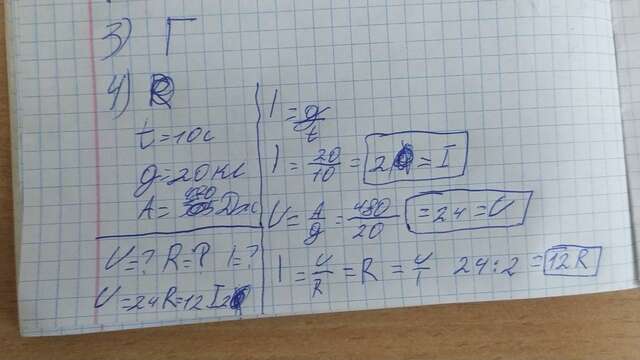 3) Г
4)
t=10с
q=20кл
A=480Дж
U=? R=? I=?
U=24 R=12 I2
I = q/t
I = 20/10 = 2 = I
U = A/q = 480/20 = 24 = U
I = U/R = R = U/I 24:2 = 12R